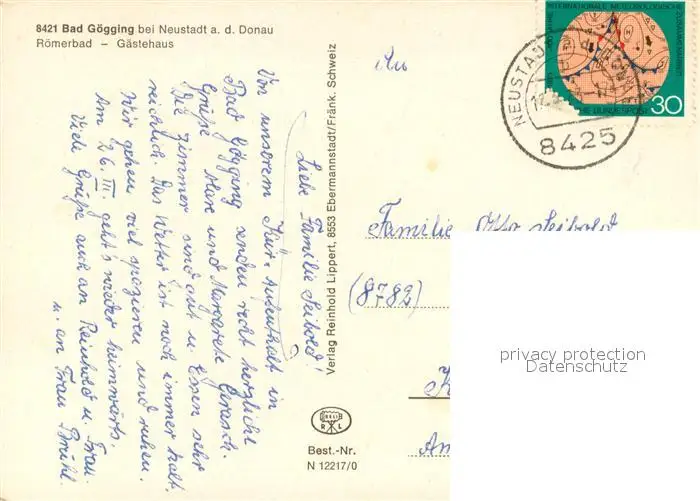 8421 Bad Gögging bei Neustadt a. d. Donau
Römerbad – Gästehaus
Liebe Familie Seibold!
Von unserem Kur-Aufenthalt in
Bad Gögging senden recht herzliche
Grüße Max und Margarete Gerasch.
Die Zimmer sind gut u. Essen sehr
reichlich. Das Wetter ist noch immer kalt.
Wir gehen viel spazieren und ruhen.
Am 26. III. geht's wieder heimwärts.
Viele Grüße auch an Reinhold u. Frau
u. an Frau Brühl.
Verlag Reinhold Lippert, 8553 Ebermannstadt/Fränk. Schweiz
RL
Best.-Nr.
N 12217/0
INTERNATIONALE METEOROLOGISCHE
ZUSAMMENARBEIT
BUNDESPOST
30
NEUSTADT
8425
An
Familie Otto Seibold
(8782)
K
Am
privacy protection
Datenschutz